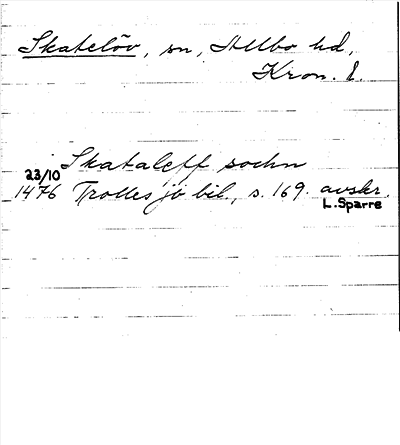 Skatelöv, sn, Allbo hd,
Kron. l.
Skataleff sochn
23/10
1476 Trolles jb bil., s. 169. avskr.
L. Sparre